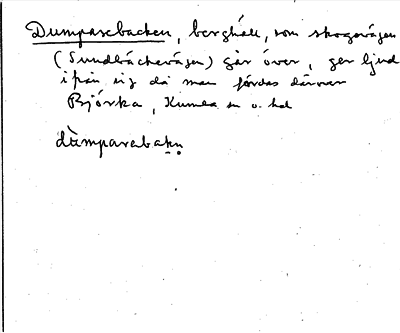 Dumparebacken, berghäll, som skogsvägen
(Sundbäckevägen) går över, ger ljud
ifrån sig då man färdas därover
Björka, Kumla sn o. hd
dùmparabakn̥